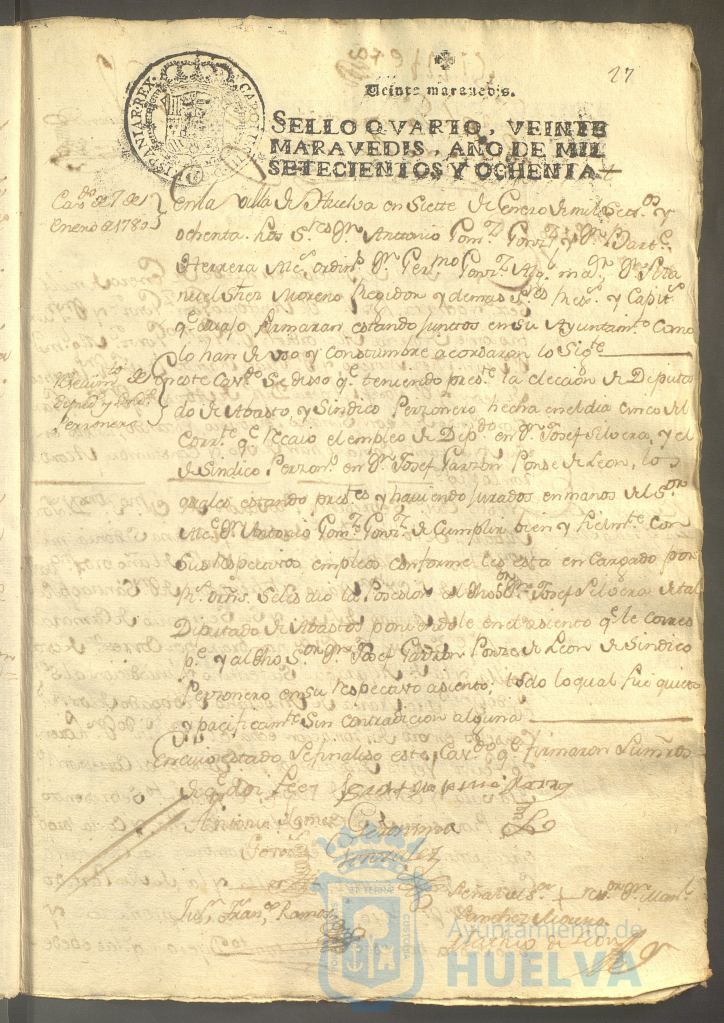 27
Veinte maravedis.
SELLO QVARTO, VEINTE
MARAVEDIS, AÑO DE MIL
SETECIENTOS Y OCHENTA
CAROLUS III
HISPANIAR. REX
Cav.do de 7 de
Enero de 1780
En la Villa de Huelva en Siete de Enero de mil Setes. y
ochenta. los S.res Dn. Antonio Gom.z Gonz.z y Dn. Bart.e
Herrera Alc.s ordin.s Dn. Ger.mo Gonz.z
Moreno Regidor y demas S.res
q.e avajo firmaran estando Junctos en su Ayuntam.to Como
lo han de uso y Constumbre acordaron lo Sig.te
Recivim.to de
diputado y Sind.co
Perzonero
En este Cav.do Se dixo q.e teniendo pres.te la eleccion de Diputa
do de Abasto, y Sindico Perzonero hecha en el dia cinco del
Corr.te q.e recaio el empleo de Dip.do en Dn. Josef Silvera, y el
de Sindico Perzon.o en Dn. Josef Garzon Ponse de Leon, los
quales estando pres.tes y haviendo Jurado en manos del S.or
Alc.e Dn. Antonio Gom.z Gonz.z de Cumplir bien y fielm.te Con
Sus respectivos empleos conforme les esta encargado por
Se les dio la Posesion al dho S.or Dn. Josef Silvera de tal
Diputado de Abastos poniendole en el asiento q.e le corres
p.e y al dho S.or Dn. Josef Garzon Ponze de Leon de Sindico
Perzonero en su respectivo asiento, todo lo qual fue quieta
y pacificam.te Sin contradicion alguna
En cuio estado Se finaliso este Cav.do q.e firmaron Sus mrds
de q.e doi fee
Antonio Gomez
Geronimo
Gonzalez
Señal del S.or + Rex.or Dn. Man.l
Sanchez Moreno
Jus.n Fran.co Ramos
Ayuntamiento de
HUELVA